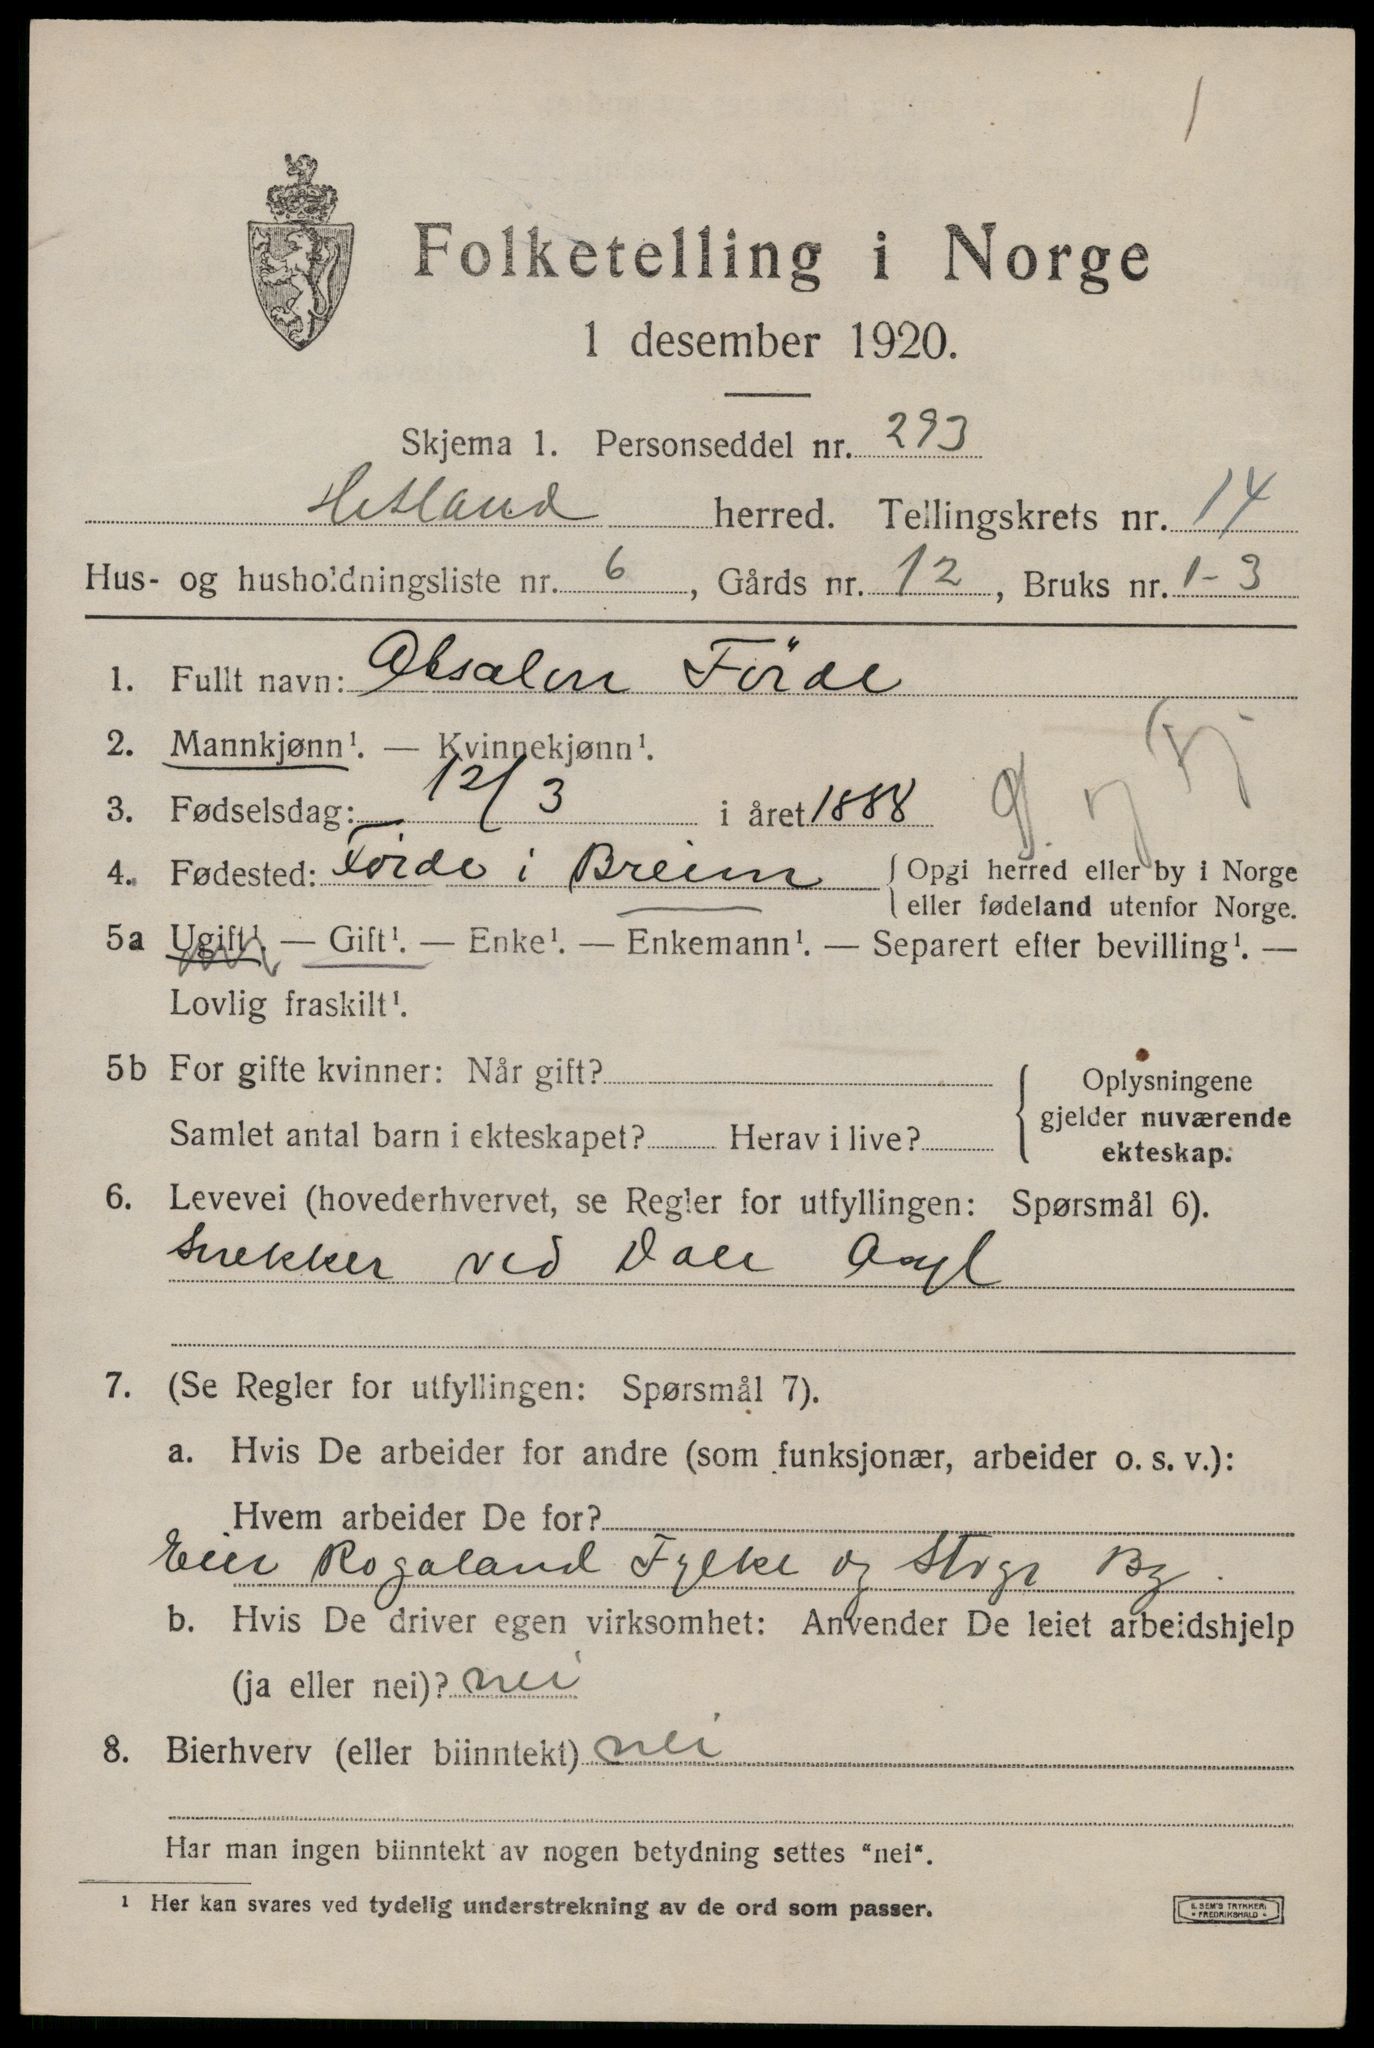 1
Folketelling i Norge
1 desember 1920.
Skjema 1. Personseddel nr. 293
Hetland herred. Tellingskrets nr. 14
Hus- og husholdningsliste nr. 6, Gårds nr. 12, Bruks nr. 1-3
1. Fullt navn: Absalon Förde
2. Mannkjønn¹. — Kvinnekjønn¹.
3. Fødselsdag: 12/3 i året 1888
4. Fødested: Förde i Breim {Opgi herred eller by i Norge
eller fødeland utenfor Norge.
5a Ugift¹. — Gift¹. — Enke¹. — Enkemann¹. — Separert efter bevilling¹. —
Lovlig fraskilt¹.
5b For gifte kvinner: Når gift?
Samlet antal barn i ekteskapet? Herav i live?
Oplysningene
gjelder nuværende
ekteskap.
6. Levevei (hovederhvervet, se Regler for utfyllingen: Spørsmål 6).
Snekker ved Dale Asyl
7. (Se Regler for utfyllingen: Spørsmål 7).
a. Hvis De arbeider for andre (som funksjonær, arbeider o. s. v.):
Hvem arbeider De for?
Eier Rogaland Fylke og Stvgr By.
b. Hvis De driver egen virksomhet: Anvender De leiet arbeidshjelp
(ja eller nei)? nei
8. Bierhverv (eller biinntekt) nei
Har man ingen biinntekt av nogen betydning settes "nei".
1 Her kan svares ved tydelig understrekning av de ord som passer.
E. SEM'S TRYKKERI
FREDRIKSHALD